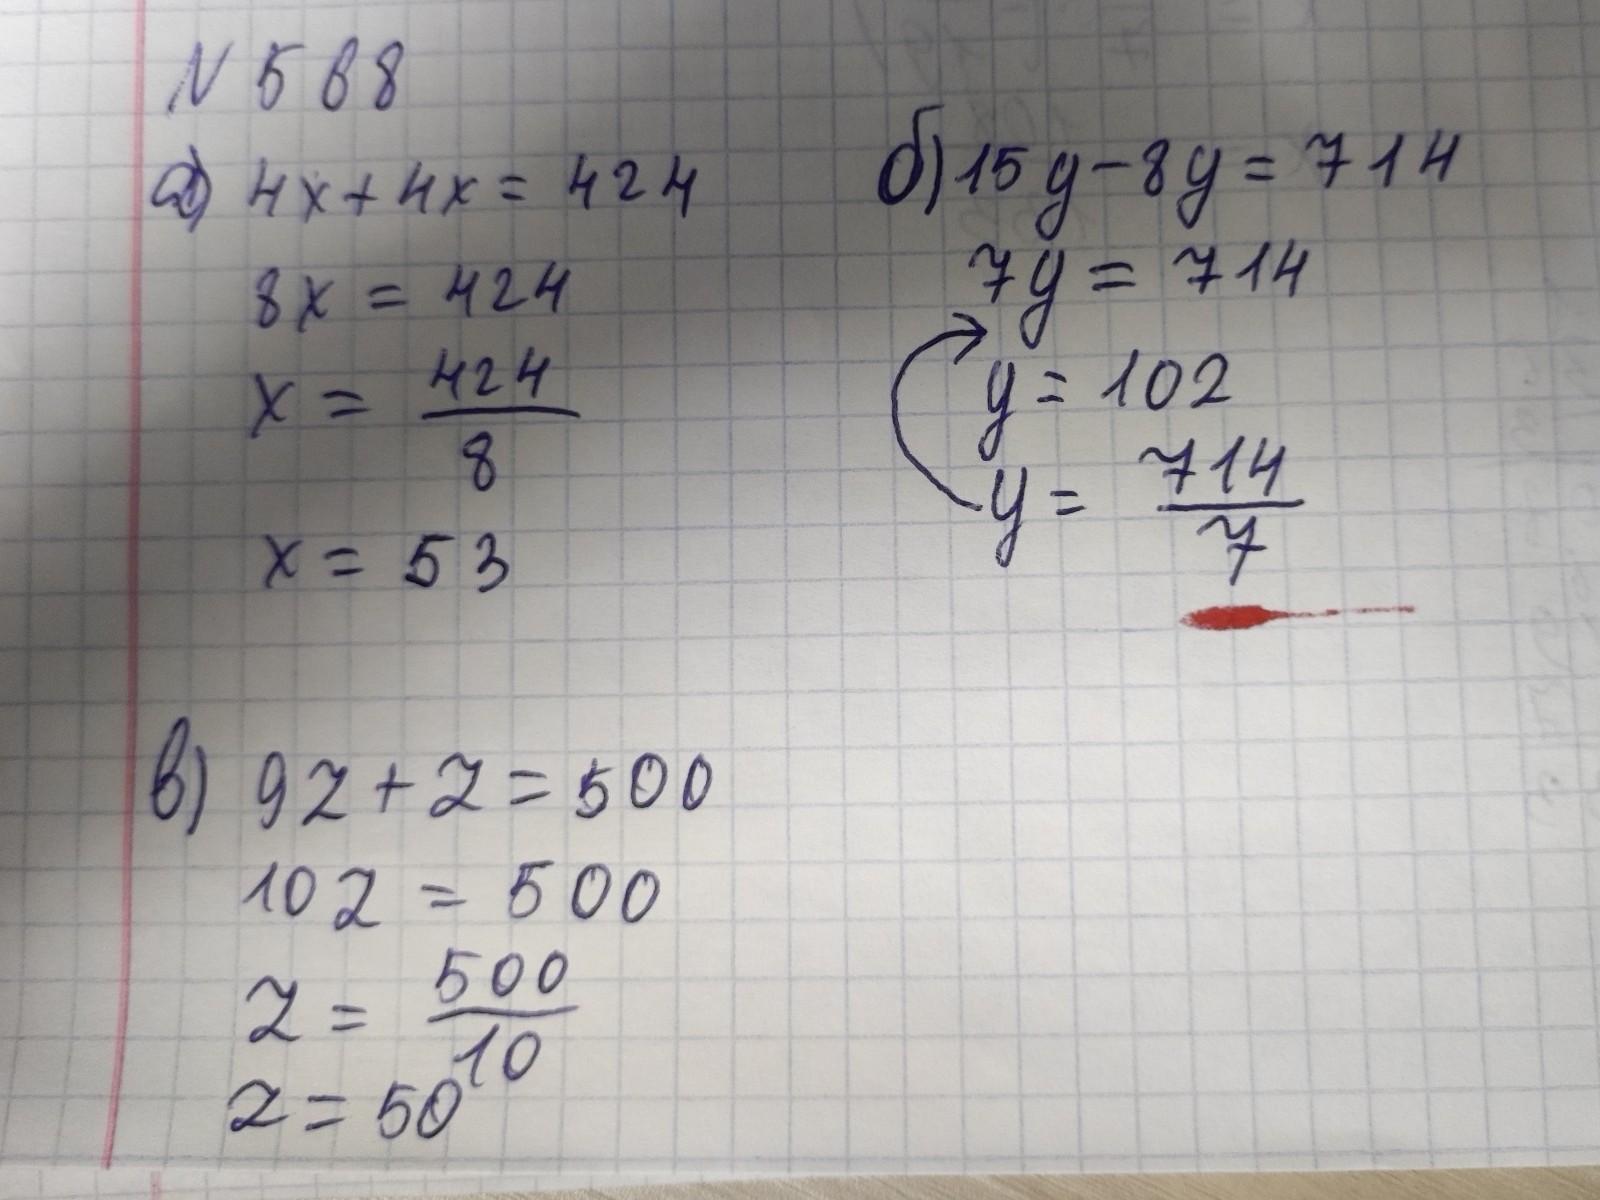 N 568
а) 4x + 4x = 424
8x = 424
x = 424/8
x = 53
б) 15y - 8y = 714
7y = 714
y = 102
y = 714/7
в) 9z + z = 500
10z = 500
z = 500/10
z = 50